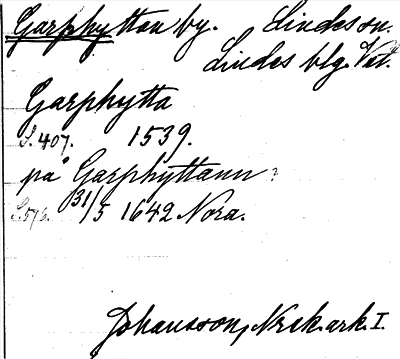 Garphyttan by. Lindes sn.
Lindes blg. Vstl.
Garphytta
S. 407. 1539.
på Garphyttann?
S. 576. 31/5 1642 Nora.
Johansson, Nrck. ark. I.